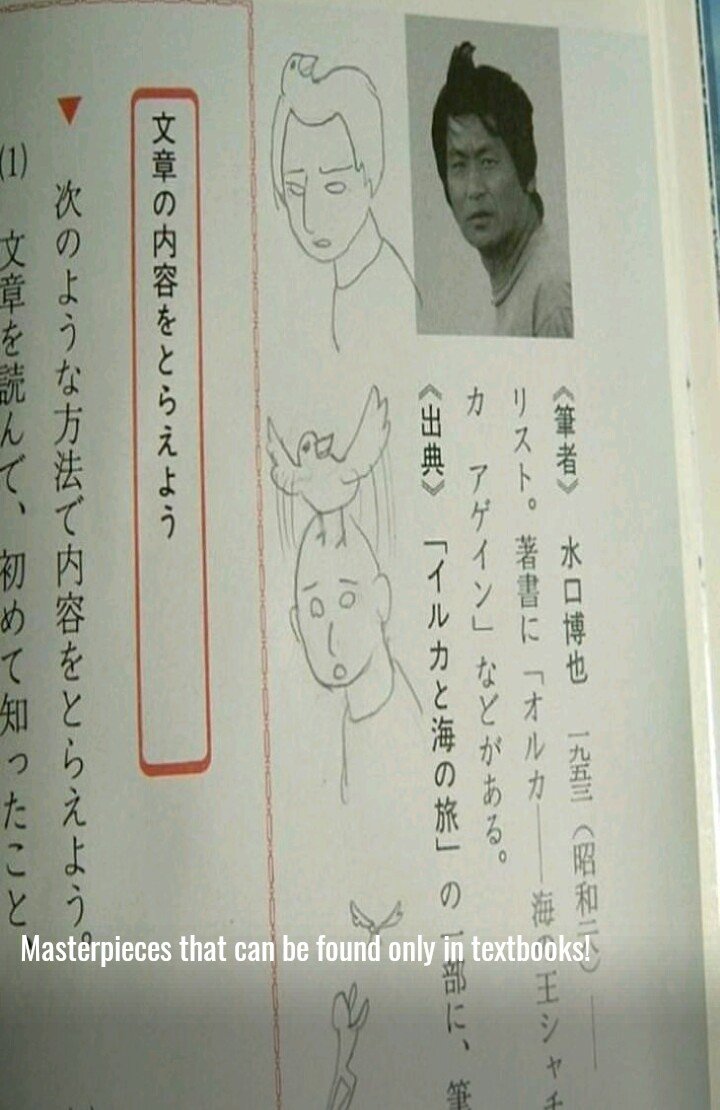 《筆者》 水口博也 一九五三(昭和二八)――
リスト。著書に「オルカ――海の王シャチ
カ アゲイン」などがある。
《出典》 「イルカと海の旅」の一部に、筆
文章の内容をとらえよう
▼ 次のような方法で内容をとらえよう。
(1) 文章を読んで、初めて知ったこと
Masterpieces that can be found only in textbooks!